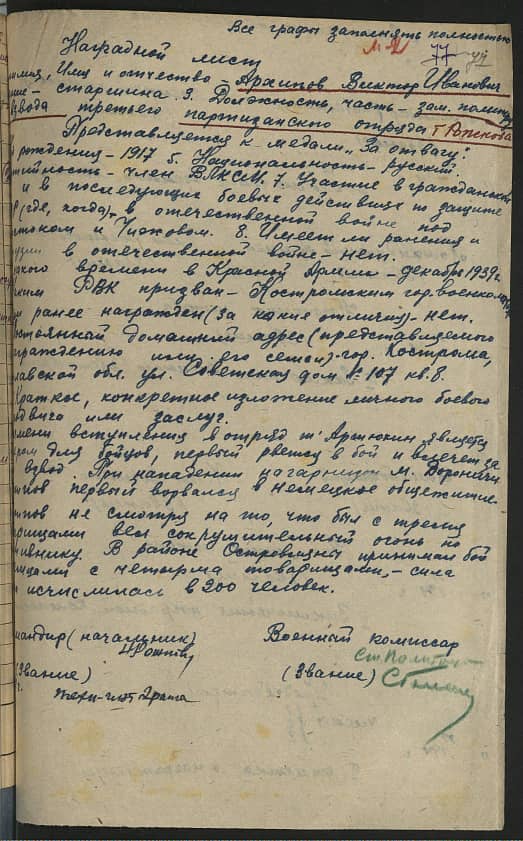 Все графы заполнять полностью
77
Наградной лист
Имя и отчество – Архипов Виктор Иванович
старшина 3. Должность, часть – зам. полит
взвода третьего партизанского отряда т. Рожкова
Представляется к медали „За отвагу".
рождения – 1917 5. Национальность – русский.
член ВЛКСМ. 7. Участие в гражданской
и в последующих боевых действиях по защите
(где, когда), в отечественной войне под
и Чижовом. 8. Имеет ли ранения и
в отечественной войне – нет.
времени в Красной Армии – декабрь 1939 г.
РВК призван – Костромским гор. военкоматом
ранее награжден (за какие отличия) – нет.
домашний адрес (представляемого
награждению или его семьи) – гор. Кострома,
обл. ул. Советская дом № 107 кв. 8.
Краткое, конкретное изложение личного боевого
подвига или заслуг.
вступления в отряд т.
для бойцов, первый рвется в бой и ведечет за
взвод. При нападении на гарнизон м.
первый ворвался в немецкое общежитие
не смотря на то, что был с тремя
вел сокрушительный огонь по
В районе принимал бой
с четырмя товарищами, – сила
исчислилась в 200 человек.
(начальник) Военный комиссар
(Звание) (Звание)